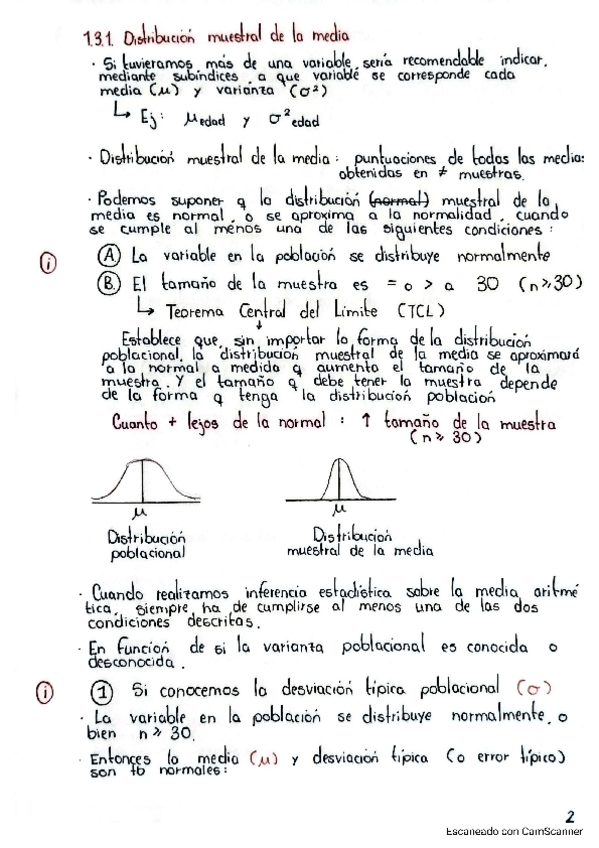 1.3.1. Distribución muestral de la media
· Si tuvieramos más de una variable, sería recomendable indicar,
mediante subíndices, a que variable se corresponde cada
media (μ) y varianza (σ²)
↳ Ej: μedad y σ²edad
· Distribución muestral de la media: puntuaciones de todas las medias
obtenidas en ≠ muestras.
· Podemos suponer q la distribución (normal) muestral de la
media es normal, o se aproxima a la normalidad, cuando
se cumple al menos una de las siguientes condiciones:
(i) (A) La variable en la población se distribuye normalmente
(B) El tamaño de la muestra es = o > a 30 (n≥30)
↳ Teorema Central del Límite (TCL)
↓
Establece que, sin importar la forma de la distribución
poblacional, la distribución muestral de la media se aproximará
a la normal a medida q aumenta el tamaño de la
muestra. Y el tamaño q debe tener la muestra depende
de la forma q tenga la distribución población
Cuanto + lejos de la normal: ↑ tamaño de la muestra
(n ≥ 30)
μ μ
Distribución Distribución
poblacional muestral de la media
· Cuando realizamos inferencia estadística sobre la media aritmé
tica, siempre ha de cumplirse al menos una de las dos
condiciones descritas.
· En función de si la varianza poblacional es conocida o
desconocida.
(i) (1) Si conocemos la desviación típica poblacional (σ)
· La variable en la población se distribuye normalmente, o
bien n ≥ 30.
· Entonces la media (μ) y desviación típica (o error típico)
son tb normales:
2
Escaneado con CamScanner